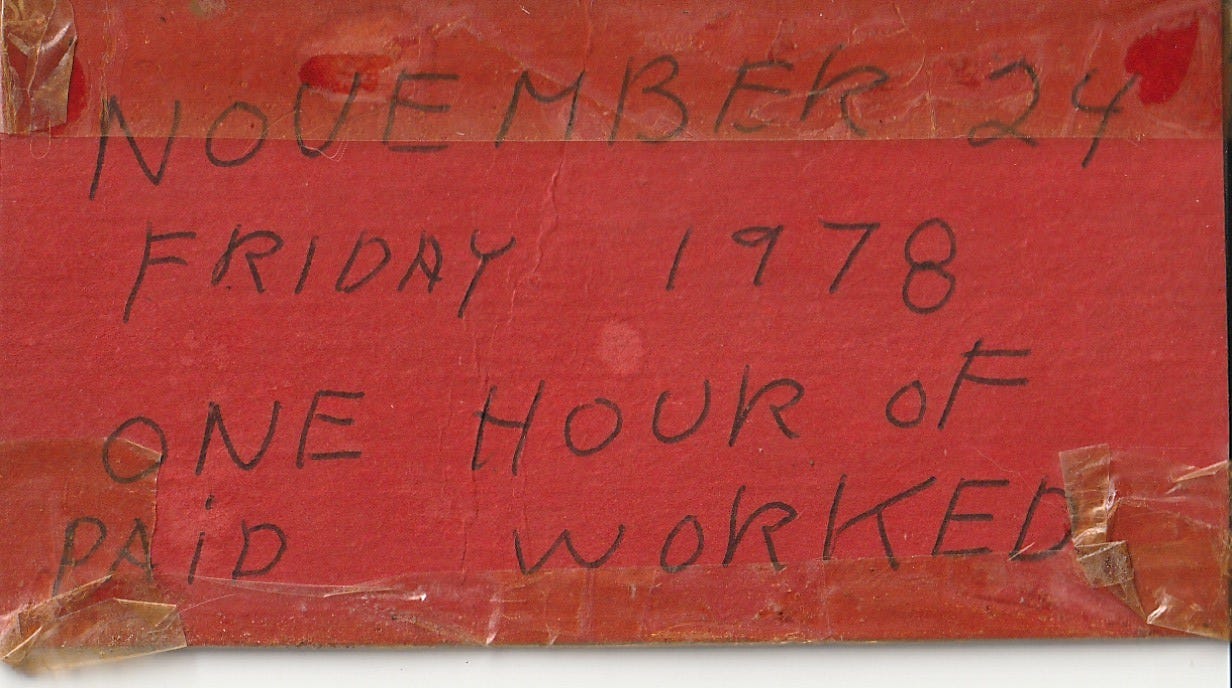 NOVEMBER 24
FRIDAY 1978
ONE HOUR OF
PAiD WORKED